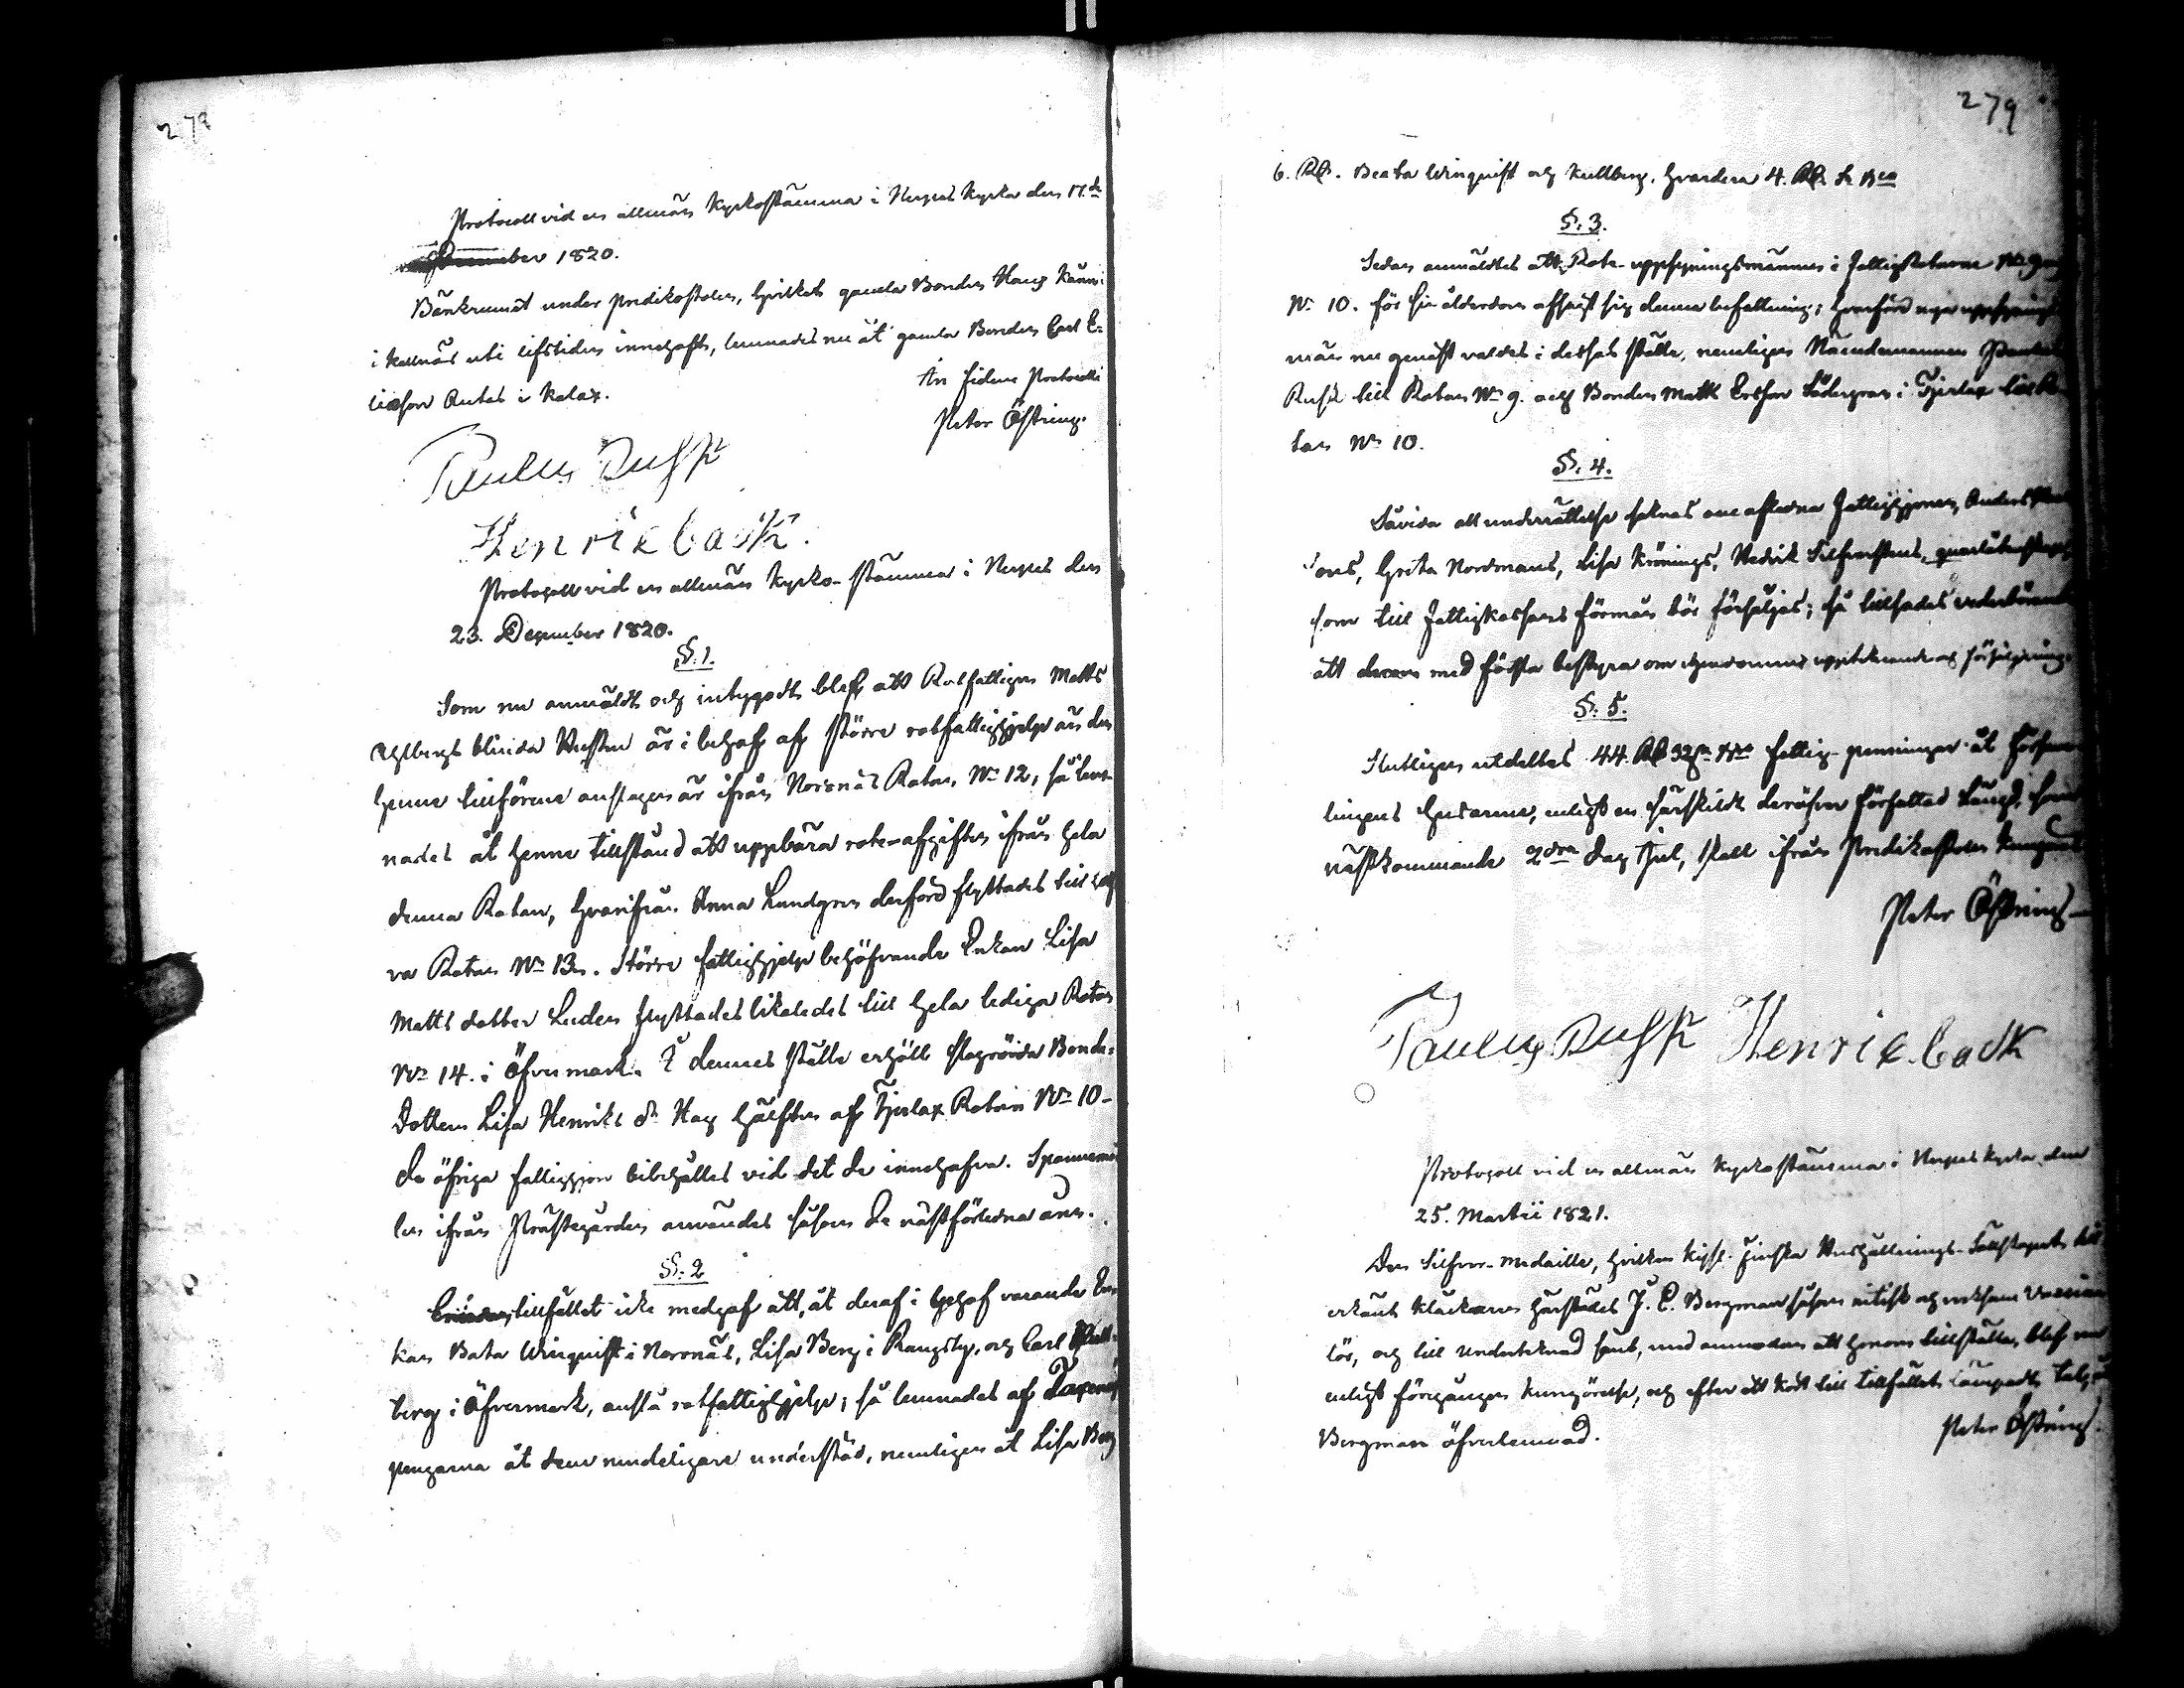 279
Protocoll vid en allmän Kyrkostämma i Nerpes Kyrka den 17.de
December 1820.
Bänkrumet under predikostolen, hvilket gamla Bonden Hans
i Kallnäs uti lifstiden innehaft, lemnades nu åt gamla Bonden Carl E-
licsson Antas i Kalax.
In fidem Protocolli
Peter Östring.
Paulus Rusk
Henric back.
Protocoll vid en allmän Kyrko-stämma i Nerpes den
23. December 1820.
§. 1.
Som nu anmäldt och intygadt blef att Rotfattigen Matts
Ahlbergs blinda Hustru är i behof af större rotfattighjelp än den
henne tillförene anslagen är ifrån Norrnäs Rotan, No 12, så lem-
nades åt henne tillstånd att uppbära rote-afgiften ifrån hela
denna Rotan, hvarifrån Anna Lundgren derförd flyttades till half-
va Rotan No 13. Större fattighjelp behöfvande Enkan Lisa
Matts dotter Luden flyttades likaledes till hela lediga Rotan
No 14. i Öfvermark. I dennes ställe erhöll Bonde-
Dottren Lisa Henriks dr Hag hälften af Tjerlax Rotan No 10-
de öfriga fattighjon bibehålles vid det de innehafva. Spannemå-
len ifrån Prästegården användes såsom de nästförledna åren.
§. 2
tillfället icke medgaf att, åt deraf i behof varande En-
kan Beata Winquist i Norrnäs, Lisa Berg i Rangsby, och Carl Kull-
berg i Öfvermark, anslå rotfattighjelp; så lemnades af
pengarna åt dem nödeligare understöd, nemligen åt Lisa Berg
279
6. Rb. Beata Winquist och Kullberg, hvardera 4. Rb. S. Bco
§. 3.
Sedan anmäldtes att Rote-uppsyningsmännen i Fattigrotarne No 9 och
No 10. för sin ålderdom afsagt sig denna befattning; hvarföre nya uppsynings-
män nu genast valdes i dessas ställe, nemligen Nämndemannen Paulus
Rusk till Rotan No 9. och Bonden Matts Ersson Södergran i Tjerlax till Ro-
tan No 10.
§. 4.
Såvida all underrättelse saknas om aflidna Fattighjonen, Anders
sons, Greta Nordmans, Lisa Krönings, Hedvik Silfverstens, qvarlåtenskap,
som till Fattigkassans förmån bör försäljas; så tillsades vederbörande
att derom med första bestyra om egendomens upptecknande och försäljning.
§. 5.
Slutligen utdeltes 44. Rb 32 sk Bco fattig-penningar åt Försam-
lingens husarme, enligt en särskildt deröfver författad Längd, som
nästkommande 2dra dag Jul, skall ifrån Predikstolen kungöras.
Peter Östring
Paulus Rusk Henric back
Protocoll vid en allmän Kyrkostämma i Nerpes kyrka den
25. Martii 1821.
Den Silfver-Medaille, hvilken Kejs. Finska Hushållnings-Sällskapet till
erkänt Klockaren härstädes J. E. Bergman såsom nitisk och verksam Vaccina-
tör, och till undertecknad sändt, med anmodan att honom tillställa, blef nu
enligt föregången kungörelse, och efter ett kort till tillfället lämpadt tal, åt
Bergman öfverlemnad.
Peter Östring.